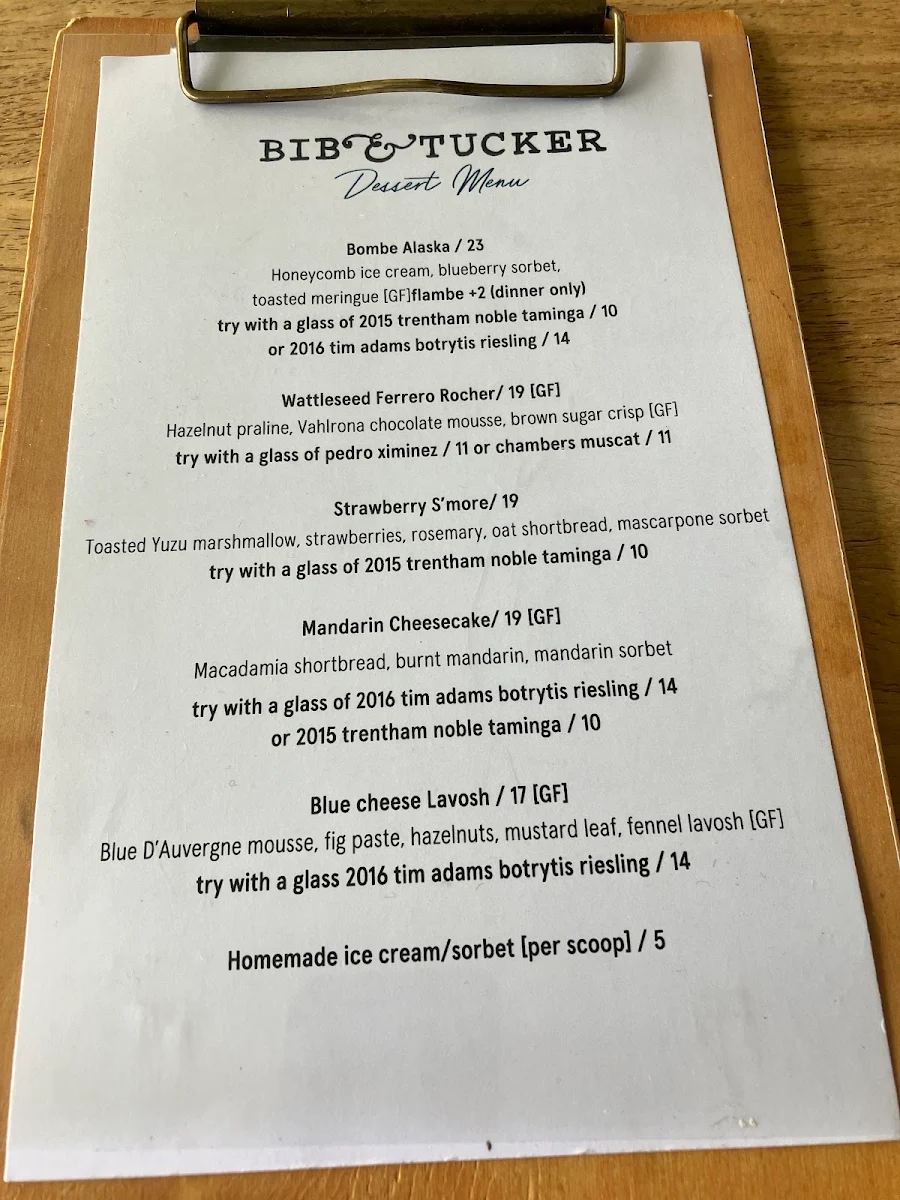 BIB & TUCKER
Dessert Menu
Bombe Alaska / 23
Honeycomb ice cream, blueberry sorbet,
toasted meringue [GF]flambe +2 (dinner only)
try with a glass of 2015 trentham noble taminga / 10
or 2016 tim adams botrytis riesling / 14
Wattleseed Ferrero Rocher/ 19 [GF]
Hazelnut praline, Vahlrona chocolate mousse, brown sugar crisp [GF]
try with a glass of pedro ximinez / 11 or chambers muscat / 11
Strawberry S'more/ 19
Toasted Yuzu marshmallow, strawberries, rosemary, oat shortbread, mascarpone sorbet
try with a glass of 2015 trentham noble taminga / 10
Mandarin Cheesecake/ 19 [GF]
Macadamia shortbread, burnt mandarin, mandarin sorbet
try with a glass of 2016 tim adams botrytis riesling / 14
or 2015 trentham noble taminga / 10
Blue cheese Lavosh / 17 [GF]
Blue D'Auvergne mousse, fig paste, hazelnuts, mustard leaf, fennel lavosh [GF]
try with a glass 2016 tim adams botrytis riesling / 14
Homemade ice cream/sorbet [per scoop] / 5